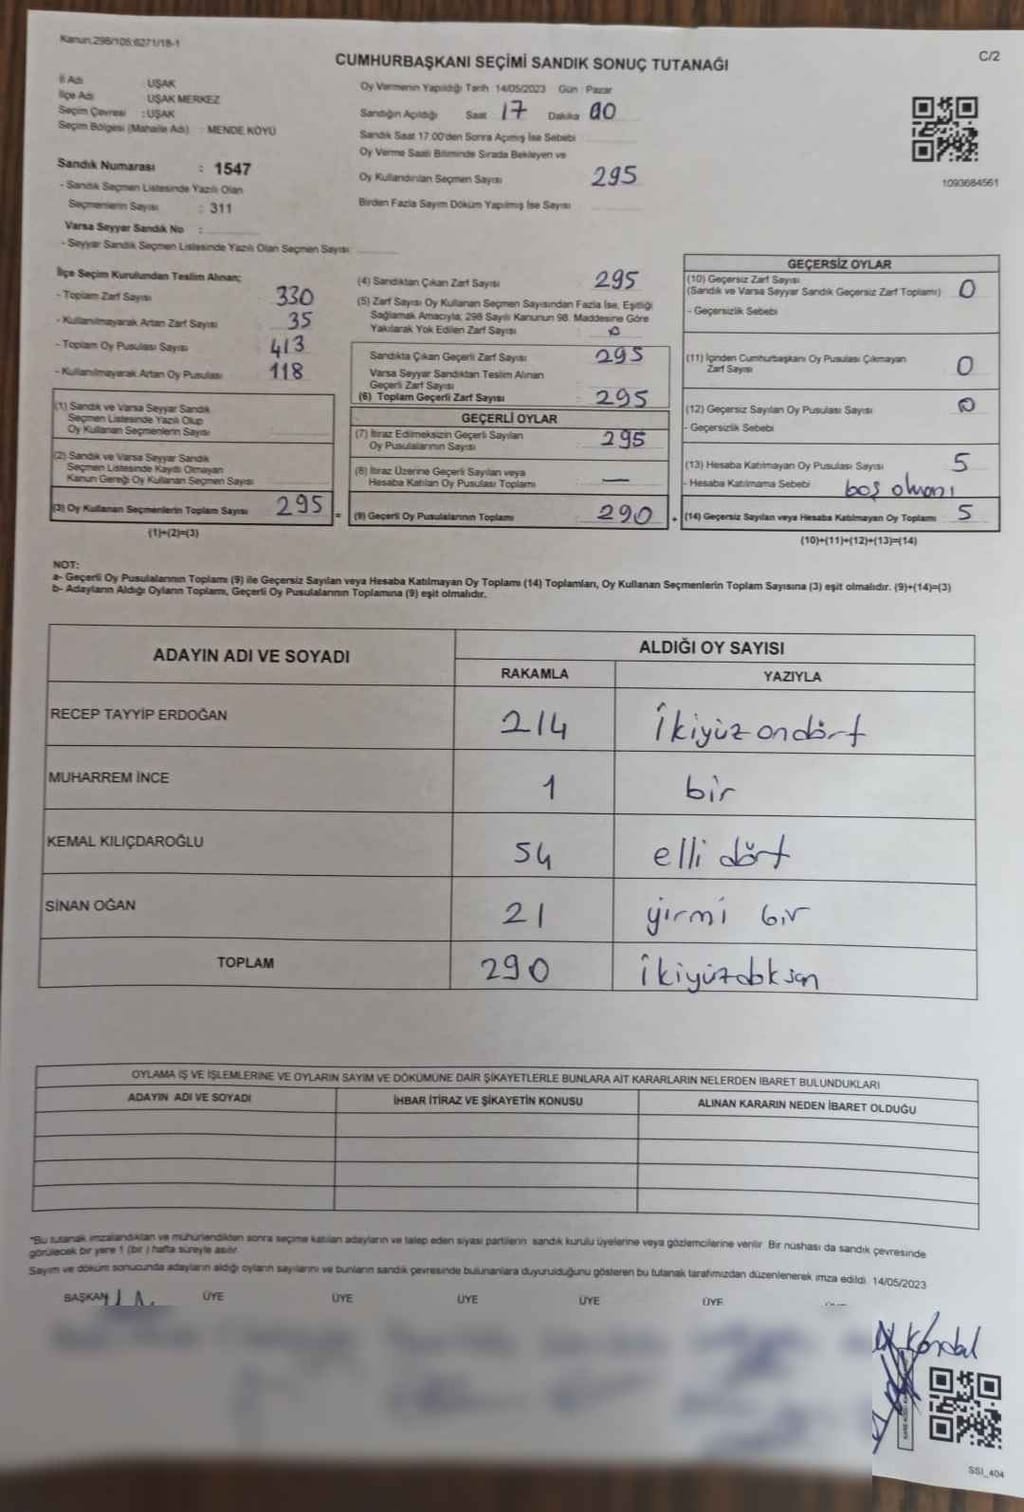 Kanun,298/105;6271/18-1
C/2
CUMHURBAŞKANI SEÇİMİ SANDIK SONUÇ TUTANAĞI
İl Adı : UŞAK
İlçe Adı : UŞAK MERKEZ
Seçim Çevresi : UŞAK
Seçim Bölgesi (Mahalle Adı) : MENDE KÖYÜ
Sandık Numarası : 1547
- Sandık Seçmen Listesinde Yazılı Olan
Seçmenlerin Sayısı : 311
Varsa Seyyar Sandık No :
- Seyyar Sandık Seçmen Listesinde Yazılı Olan Seçmen Sayısı
Oy Vermenin Yapıldığı Tarih 14/05/2023 Gün Pazar
Sandığın Açıldığı Saat 17 Dakika 00
Sandık Saat 17.00'den Sonra Açılmış İse Sebebi
Oy Verme Saati Bitiminde Sırada Bekleyen ve
Oy Kullandırılan Seçmen Sayısı 295
Birden Fazla Sayım Döküm Yapılmış İse Sayısı
1093684561
İlçe Seçim Kurulundan Teslim Alınan;
- Toplam Zarf Sayısı 330
- Kullanılmayarak Artan Zarf Sayısı 35
- Toplam Oy Pusulası Sayısı 413
- Kullanılmayarak Artan Oy Pusulası 118
(1) Sandık ve Varsa Seyyar Sandık
Seçmen Listesinde Yazılı Olup
Oy Kullanan Seçmenlerin Sayısı
(2) Sandık ve Varsa Seyyar Sandık
Seçmen Listesinde Kayıtlı Olmayan
Kanun Gereği Oy Kullanan Seçmen Sayısı
(3) Oy Kullanan Seçmenlerin Toplam Sayısı 295 =
(1)+(2)=(3)
(4) Sandıktan Çıkan Zarf Sayısı 295
(5) Zarf Sayısı Oy Kullanan Seçmen Sayısından Fazla İse, Eşitliği
Sağlamak Amacıyla, 298 Sayılı Kanunun 98. Maddesine Göre
Yakılarak Yok Edilen Zarf Sayısı 0
Sandıkta Çıkan Geçerli Zarf Sayısı 295
Varsa Seyyar Sandıktan Teslim Alınan
Geçerli Zarf Sayısı
(6) Toplam Geçerli Zarf Sayısı : 295
GEÇERLİ OYLAR
(7) İtiraz Edilmeksizin Geçerli Sayılan
Oy Pusulalarının Sayısı : 295
(8) İtiraz Üzerine Geçerli Sayılan veya
Hesaba Katılan Oy Pusulası Toplamı : —
(9) Geçerli Oy Pusulalarının Toplamı : 290 +
GEÇERSİZ OYLAR
(10) Geçersiz Zarf Sayısı
(Sandık ve Varsa Seyyar Sandık Geçersiz Zarf Toplamı) 0
- Geçersizlik Sebebi
(11) İçinden Cumhurbaşkanı Oy Pusulası Çıkmayan
Zarf Sayısı 0
(12) Geçersiz Sayılan Oy Pusulası Sayısı 0
- Geçersizlik Sebebi
(13) Hesaba Katılmayan Oy Pusulası Sayısı 5
- Hesaba Katılmama Sebebi boş olması
(14) Geçersiz Sayılan veya Hesaba Katılmayan Oy Toplamı 5
(10)+(11)+(12)+(13)=(14)
NOT:
a- Geçerli Oy Pusulalarının Toplamı (9) ile Geçersiz Sayılan veya Hesaba Katılmayan Oy Toplamı (14) Toplamları, Oy Kullanan Seçmenlerin Toplam Sayısına (3) eşit olmalıdır. (9)+(14)=(3)
b- Adayların Aldığı Oyların Toplamı, Geçerli Oy Pusulalarının Toplamına (9) eşit olmalıdır.
ADAYIN ADI VE SOYADI ALDIĞI OY SAYISI
RAKAMLA YAZIYLA
RECEP TAYYİP ERDOĞAN 214 İkiyüz ondört
MUHARREM İNCE 1 bir
KEMAL KILIÇDAROĞLU 54 elli dört
SİNAN OĞAN 21 yirmi bir
TOPLAM 290 ikiyüzdoksan
OYLAMA İŞ VE İŞLEMLERİNE VE OYLARIN SAYIM VE DÖKÜMÜNE DAİR ŞİKAYETLERLE BUNLARA AİT KARARLARIN NELERDEN İBARET BULUNDUKLARI
ADAYIN ADI VE SOYADI İHBAR İTİRAZ VE ŞİKAYETİN KONUSU ALINAN KARARIN NEDEN İBARET OLDUĞU
*Bu tutanak imzalandıktan ve mühürlendikten sonra seçime katılan adayların ve talep eden siyasi partilerin sandık kurulu üyelerine veya gözlemcilerine verilir. Bir nüshası da sandık çevresinde
görülecek bir yere 1 (bir ) hafta süreyle asılır.
Sayım ve döküm sonucunda adayların aldığı oyların sayılarını ve bunların sandık çevresinde bulunanlara duyurulduğunu gösteren bu tutanak tarafımızdan düzenlenerek imza edildi. 14/05/2023
BAŞKAN ÜYE ÜYE ÜYE ÜYE ÜYE
SSI_404